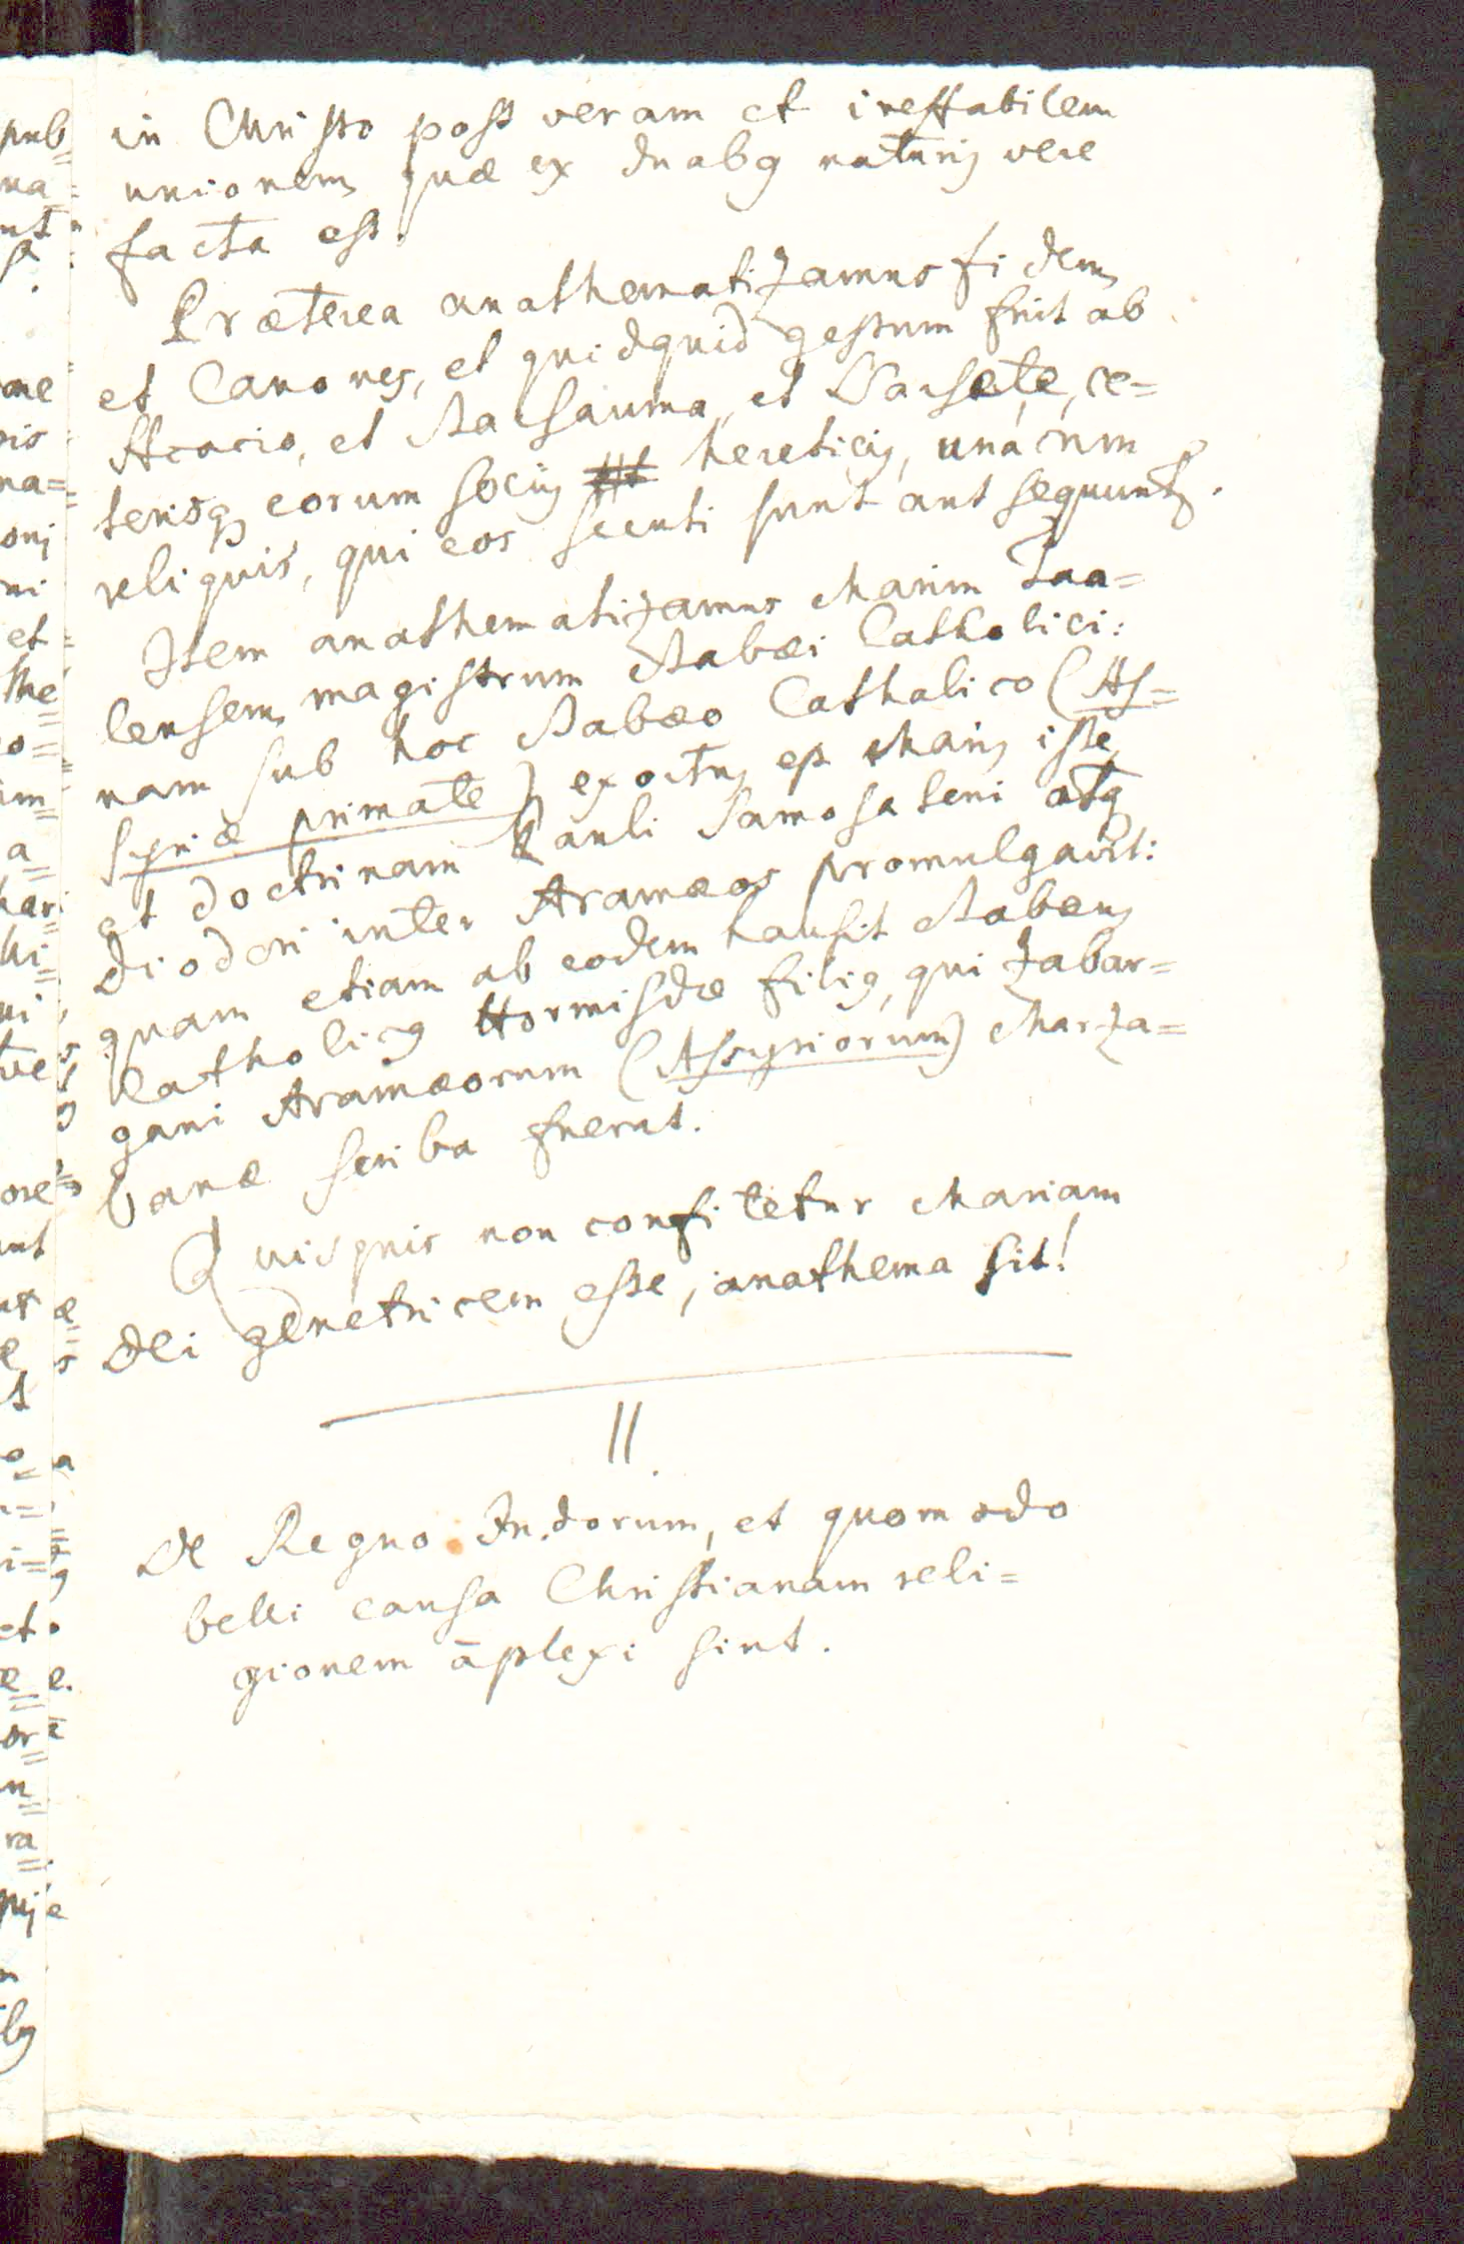 in Christo post veram et ineffabilem
unionem, quæ ex duabq naturis vere
facta est.
Præterea anathematizamus fidem,
et Canones, et quidquid gestum fuit ab
Acacio, et Barsauma, et Narsete, ce=
terisq eorum sociis hereticis, una cum
reliquis, qui eos secuti sunt aut sequuntr.
Item anathematizamus Marim Taa=
lensem, magistrum Babæi Catholici:
nam sub hoc Babæo Cathalico (As=
syriæ primate) exortus est Maris iste,
et doctrinam Pauli Samosateni atq
Diodori inter Aramæos promulgavit:
quam etiam ab eodem hausit Babæus
Catholicq Hormisdæ filiq, qui Zabar=
gani Aramæorum (Assyriorum) Marza=
banæ scriba fuerat.
Quisquis non confitetur Mariam
Dei genetricem esse, anathema sit!
II.
De Regno Indorum, et quomodo
belli causa Christianam reli=
gionem āplexi sint.